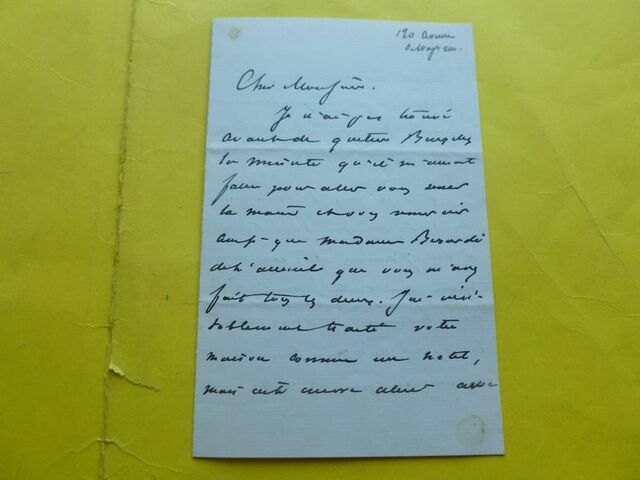 120 avenue
Cher Monsieur.
Je n'ai pas trouvé
avant de quitter
la minute qu'il m'aurait
fallu pour aller vous serrer
la main et vous remercier
ainsi que madame
de l'accueil que vous m'avez
fait tous les deux. J'ai véri-
tablement traité votre
maison comme un hotel,
mais cela encore